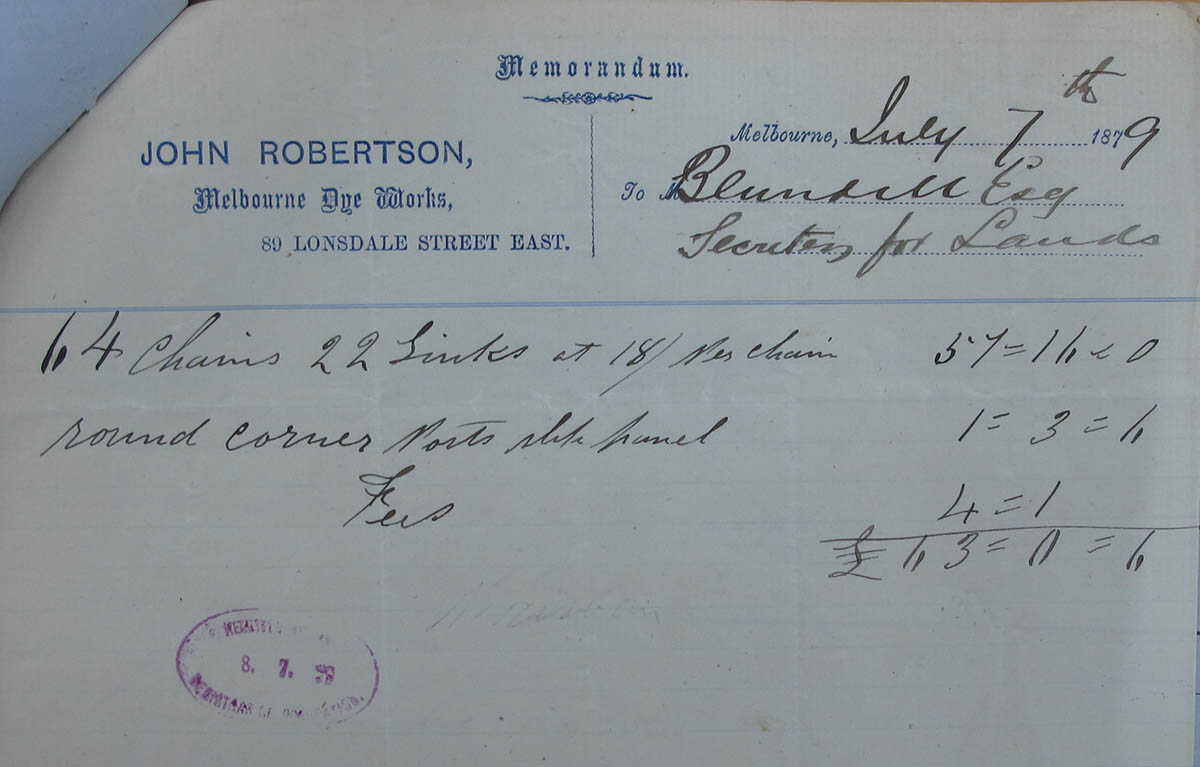 Memorandum.
JOHN ROBERTSON,
Melbourne Dye Works,
89 LONSDALE STREET EAST.
Melbourne, July 7th 1879
To M Blundell Esq
Secretary for Lands
64 Chains 22 Links at 18/ Per chain 57 = 16 = 0
round corner Posts panel 1 = 3 = 6
Fees 4 = 1
£ 63 = 0 = 6
8. 7.